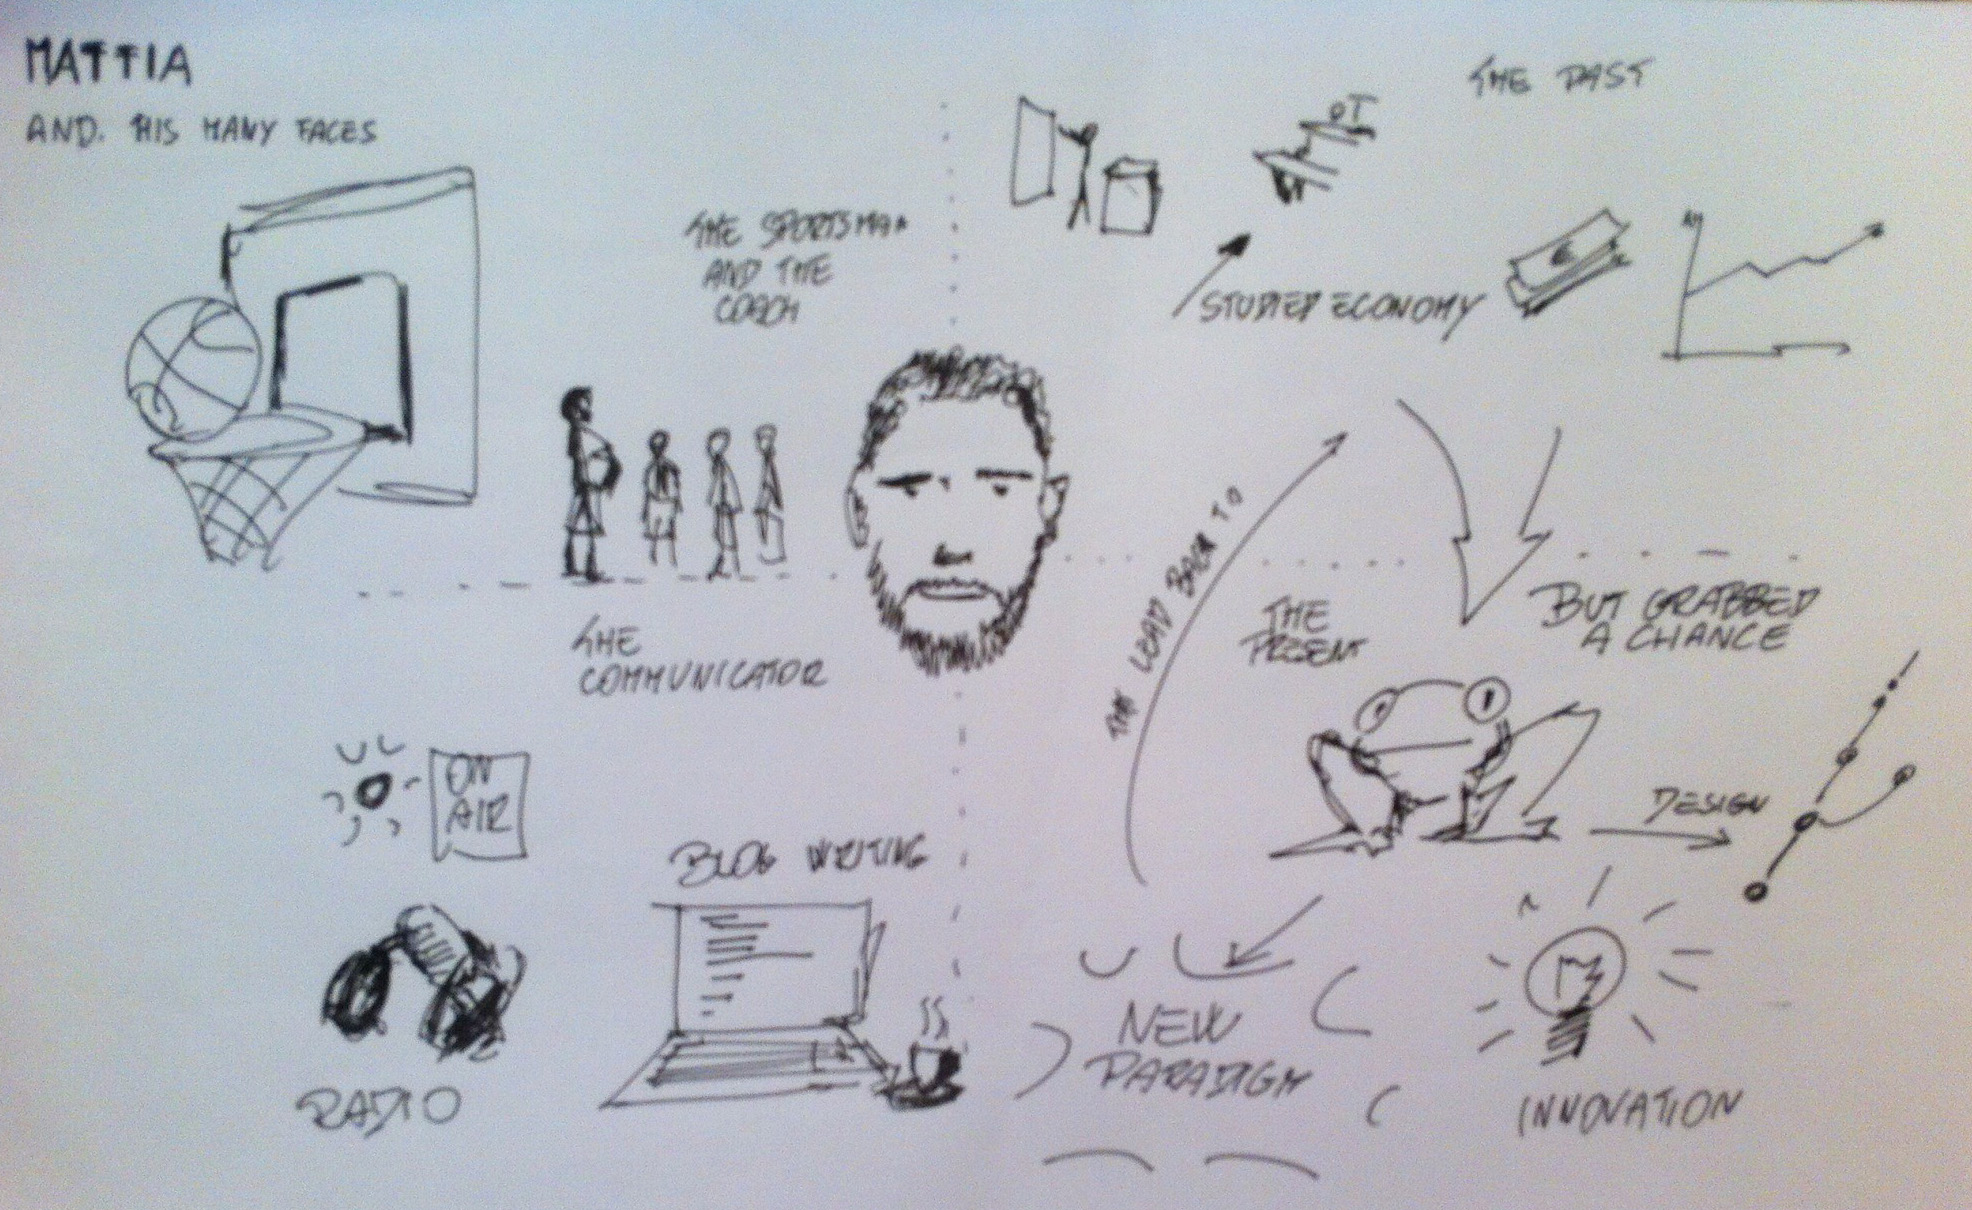 MATTIA
AND. HIS MANY FACES
THE SPORTSMAN
AND THE
COACH
THE PAST
STUDIED ECONOMY
THE
COMMUNICATOR
ON
AIR
RADIO
BLOG WRITING
LEAD BACK TO
THE
PRESENT
BUT GRABBED
A CHANCE
DESIGN
NEW
PARADIGM
INNOVATION